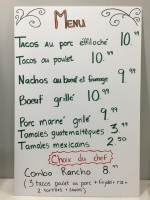 MENU
Tacos au porc effiloché 10.99
Tacos au poulet 10.99
Nachos au bœuf et fromage 9.99
Bœuf grillé 10.99
Porc mariné grillé 9.99
Tamales guatemaltèques 3.99
Tamales mexicains 2.50
Choix du chef
Combo Rancho 8.99
(3 tacos poulet ou porc + frijoles + riz +
2 tortillas + salade)